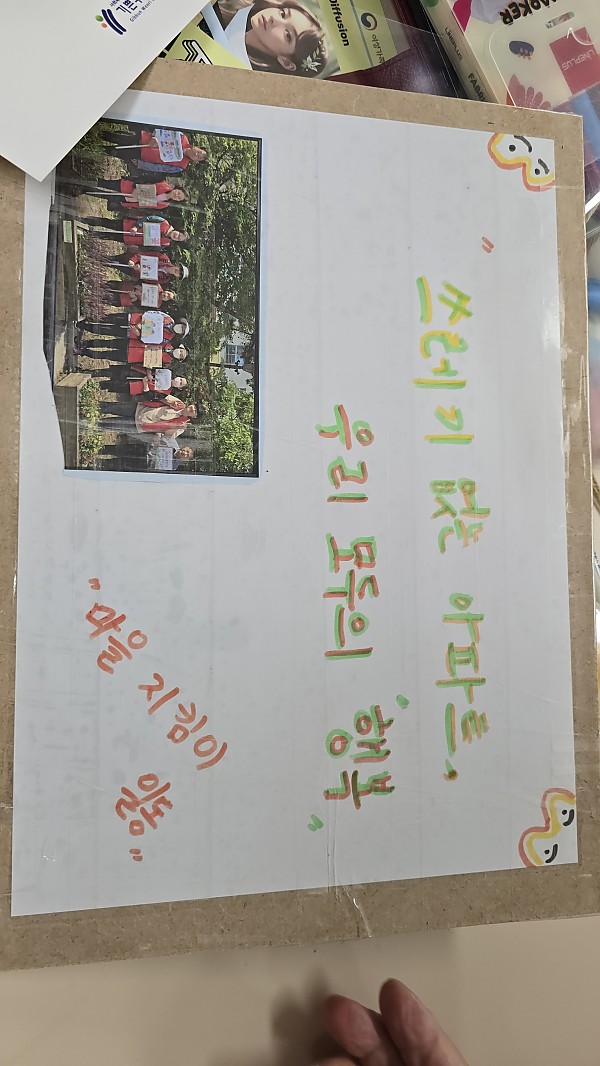 "쓰레기 없는 아파트,
우리 모두의 '행복"
"마을 지킴이
일동"
Diffusion
MARKER
FABRI
LINEPLUS